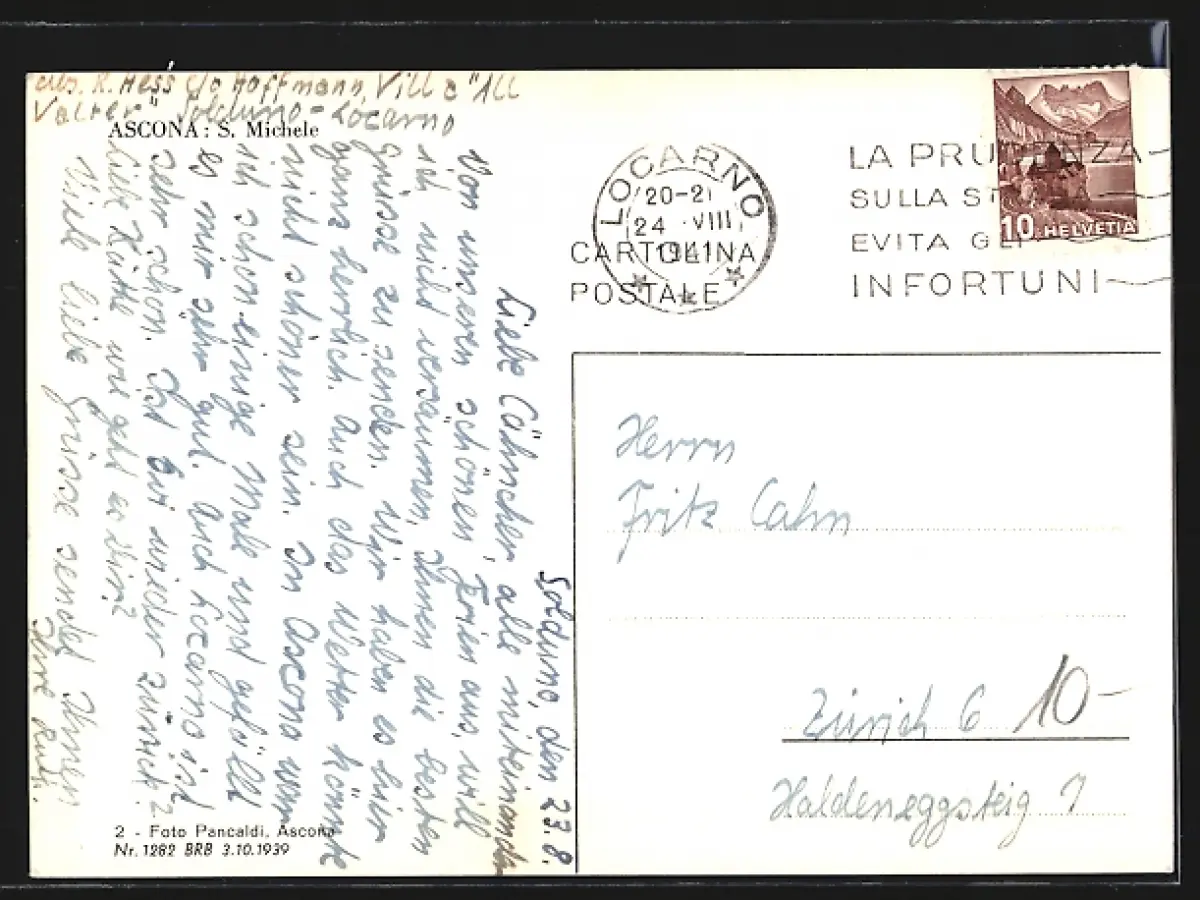 Abs. R. Hess c/o Hoffmann, Villa "All
Valter" Solduno-Locarno
ASCONA: S. Michele
LOCARNO
20-21
24 VIII
1941
CARTOLINA
POSTALE
LA PRUDENZA
SULLA ST
EVITA GLI
INFORTUNI
10 HELVETIA
Solduno, den 23.8.
Liebe Cähncher, alle miteinander
Von unseren schönen Ferien aus, will
ich nicht versäumen, Ihnen die besten
Grüsse zu senden. Wir haben es hier
ganz herrlich. Auch das Wetter könnte
nicht schöner sein. In Ascona war
ich schon einige Male und gefällt
es mir sehr gut. Auch Locarno ist
sehr schön. Ist wieder zurück?
Liebe wie geht es Dir?
Viele liebe Grüsse sendet Ihnen
Ihre Ruth.
Herrn
Fritz Cahn
Zürich 6 10-
Haldeneggsteig 7
2 - Foto Pancaldi, Ascona
Nr. 1282 BRB 3.10.1939